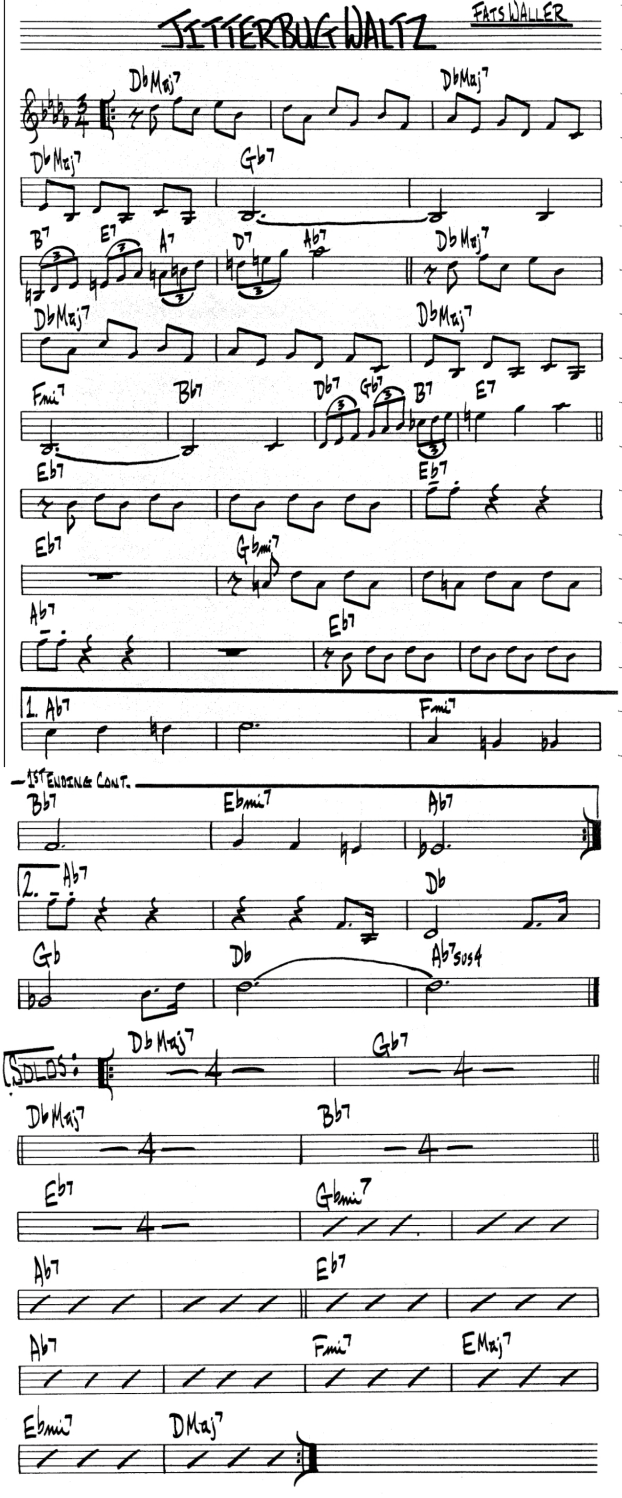 JITTERBUG WALTZ
FATS WALLER
DbMaj7 DbMaj7
3
4
DbMaj7 Gb7
B7 E7 A7 D7 Ab7 DbMaj7
3 3 3 3
DbMaj7 DbMaj7
Fmi7 Bb7 Db7 Gb7 B7 E7
3 3 3
Eb7 Eb7
Eb7 Gbmi7
Ab7 Eb7
1. Ab7 Fmi7
— 1ST ENDING CONT. —
Bb7 Ebmi7 Ab7
2. Ab7 Db
Gb Db Ab7sus4
SOLOS: DbMaj7 Gb7
4 4
DbMaj7 Bb7
4 4
Eb7 Gbmi7
4
Ab7 Eb7
Ab7 Fmi7 EMaj7
Ebmi7 DMaj7